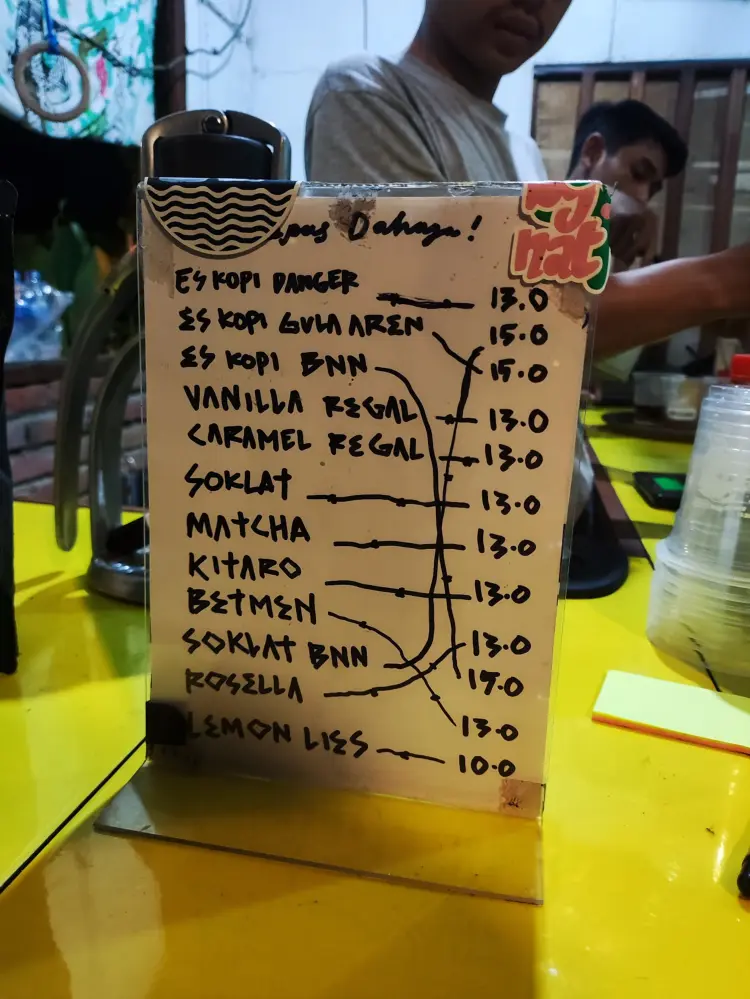 Dahaga!
ES KOPI DANGER 13.0
ES KOPI GULA AREN 15.0
ES KOPI BNN 15.0
VANILLA REGAL 13.0
CARAMEL REGAL 13.0
SOKLAT 13.0
MATCHA 13.0
KITARO 13.0
BETMEN 13.0
SOKLAT BNN 15.0
ROSELLA 13.0
LEMON LIES 10.0
nat